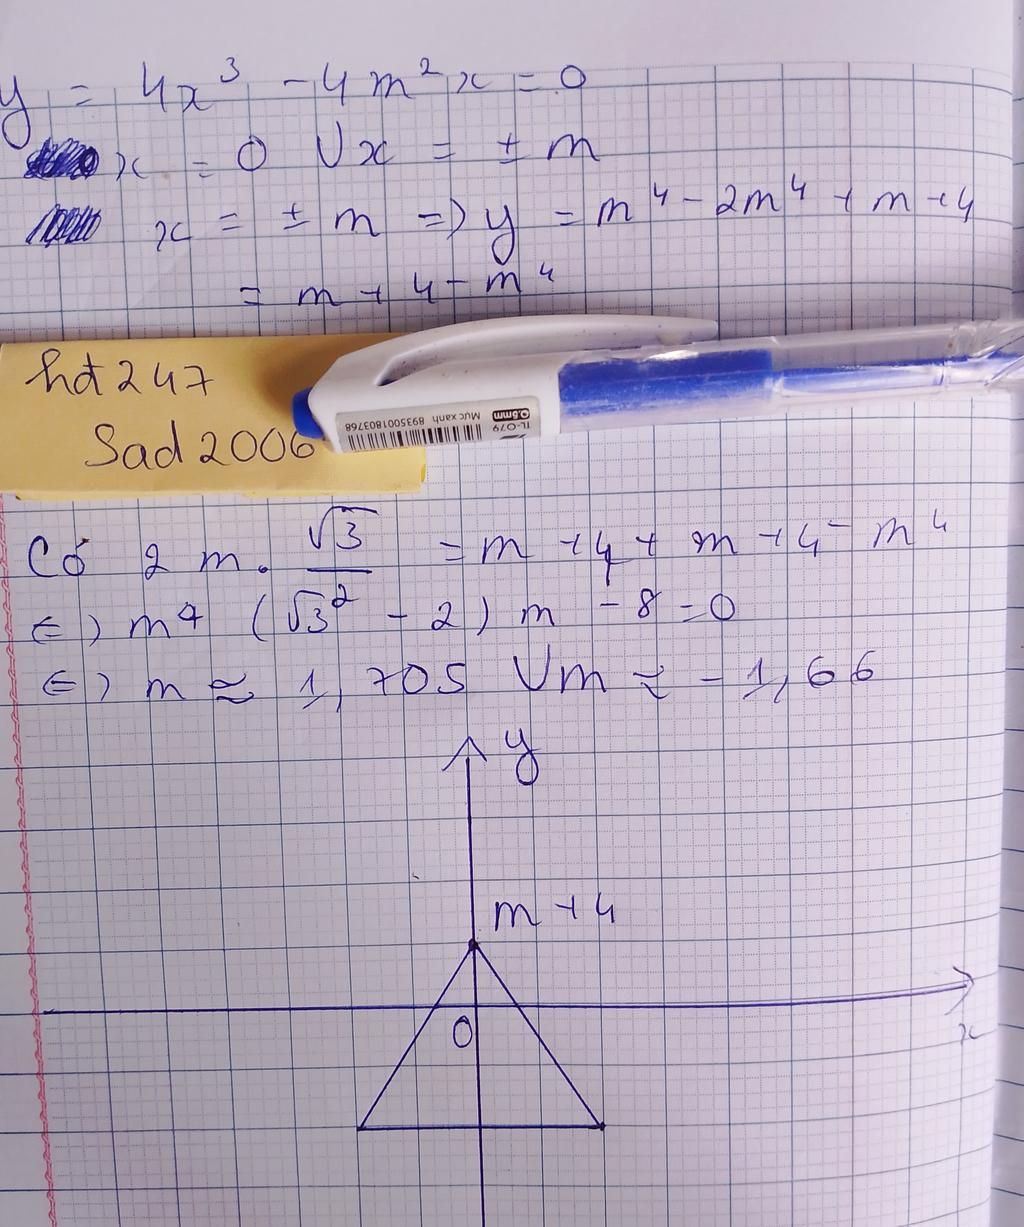 y = 4x³ - 4m²x = 0
x = 0 ∪ x = ± m
x = ± m => y = m⁴ - 2m⁴ + m + 4
= m + 4 - m⁴
hdt 247
Sad 2006
TL-079
0.5mm
Mực xanh 8935001803768
Có 2m . √3/2 = m + 4 + m + 4 - m⁴
<=> m⁴ (√3 - 2) m - 8 = 0
<=> m ≈ 1,705 ∪ m ≈ - 1,66
y
m + 4
0
x